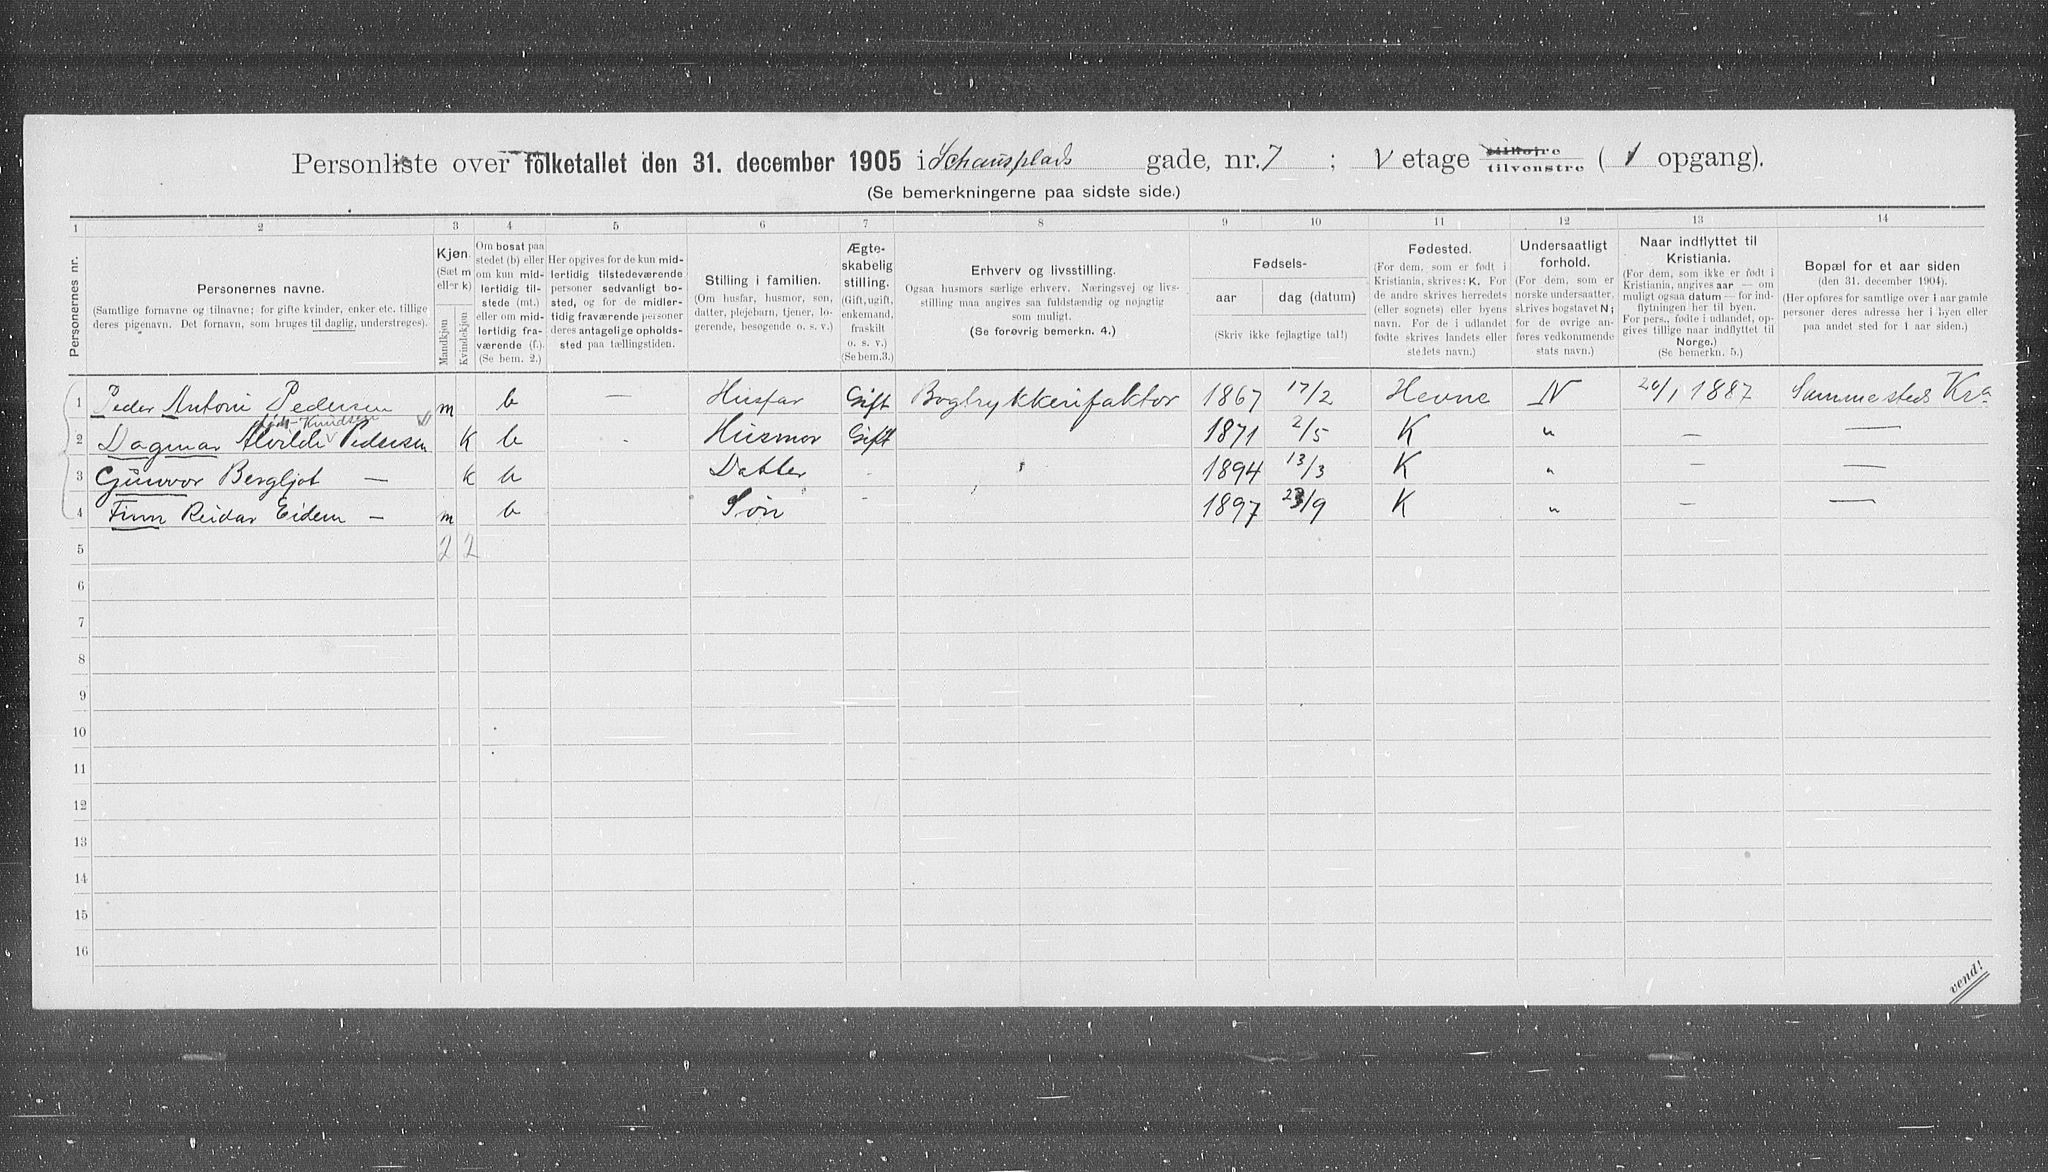 Personliste over folketallet den 31. december 1905 i Schausplads gade, nr. 7 ; V etage tilhøjre tilvenstre ( 1 opgang).
(Se bemerkningerne paa sidste side.)
1 2 3 4 5 6 7 8 9 10 11 12 13 14
Personernes nr.
Personernes navne.
(Samtlige fornavne og tilnavne; for gifte kvinder, enker etc. tillige
deres pigenavn. Det fornavn, som bruges til daglig, understreges).
Kjøn.
(Sæt m
eller k)
Mandkjøn
Kvindekjøn
Om bosat paa
stedet (b) eller
om kun mid-
lertidig til-
stede (mt.)
eller om mid-
lertidig fra-
værende (f.).
(Se bem. 2.)
Her opgives for de kun mid-
lertidig tilstedeværende
personer sedvanligt bo-
sted, og for de midler-
tidig fraværende personer
deres antagelige opholds-
sted paa tællingstiden.
Stilling i familien.
(Om husfar, husmor, søn,
datter, plejebarn, tjener, lo-
gerende, besøgende o. s. v.)
Ægte-
skabelig
stilling.
(Gift, ugift,
enkemand,
fraskilt
o. s. v.)
(Se bem.3.)
Erhverv og livsstilling.
Ogsaa husmors særlige erhverv. Næringsvej og livs-
stilling maa angives saa fuldstændig og nøjagtig
som muligt.
(Se forøvrig bemerkn. 4.)
Fødsels-
aar
dag (datum)
(Skriv ikke fejlagtige tal!)
Fødested.
(For dem, som er født i
Kristiania, skrives: K. For
de andre skrives herredets
(eller sognets) eller byens
navn. For de i udlandet
fødte skrives landets eller
stedets navn.)
Undersaatligt
forhold.
(For dem, som er
norske undersaatter,
skrives bogstavet N;
for de øvrige an-
føres vedkommende
stats navn.)
Naar indflyttet til
Kristiania.
(For dem, som ikke er født i
Kristiania, angives aar — om
muligt ogsaa datum — for ind-
flytningen her til byen.
For pers., fødte i udlandet, op-
gives tillige naar indflyttet til
Norge.)
(Se bemerkn. 5.)
Bopæl for et aar siden
(den 31. december 1904).
(Her opføres for samtlige over 1 aar gamle
personer deres adresse her i byen eller
paa andet sted for 1 aar siden.)
1 Peder Antoni Pedersen m b — Husfar Gift Bogtrykkerifaktor 1867 17/2 Hevne N 20/1 1887 Sammesteds Kra
født Knudsen
2 Dagmar Alvilde Pedersen K b - Husmor Gift 1871 2/5 K " — —
3 Gunvor Bergljot — k b Datter - 1894 13/3 K " — —
4 Finn Reidar Eidem — m b Søn - 1897 23/9 K " — —
5 2 2
6
7
8
9
10
11
12
13
14
15
16
vend!